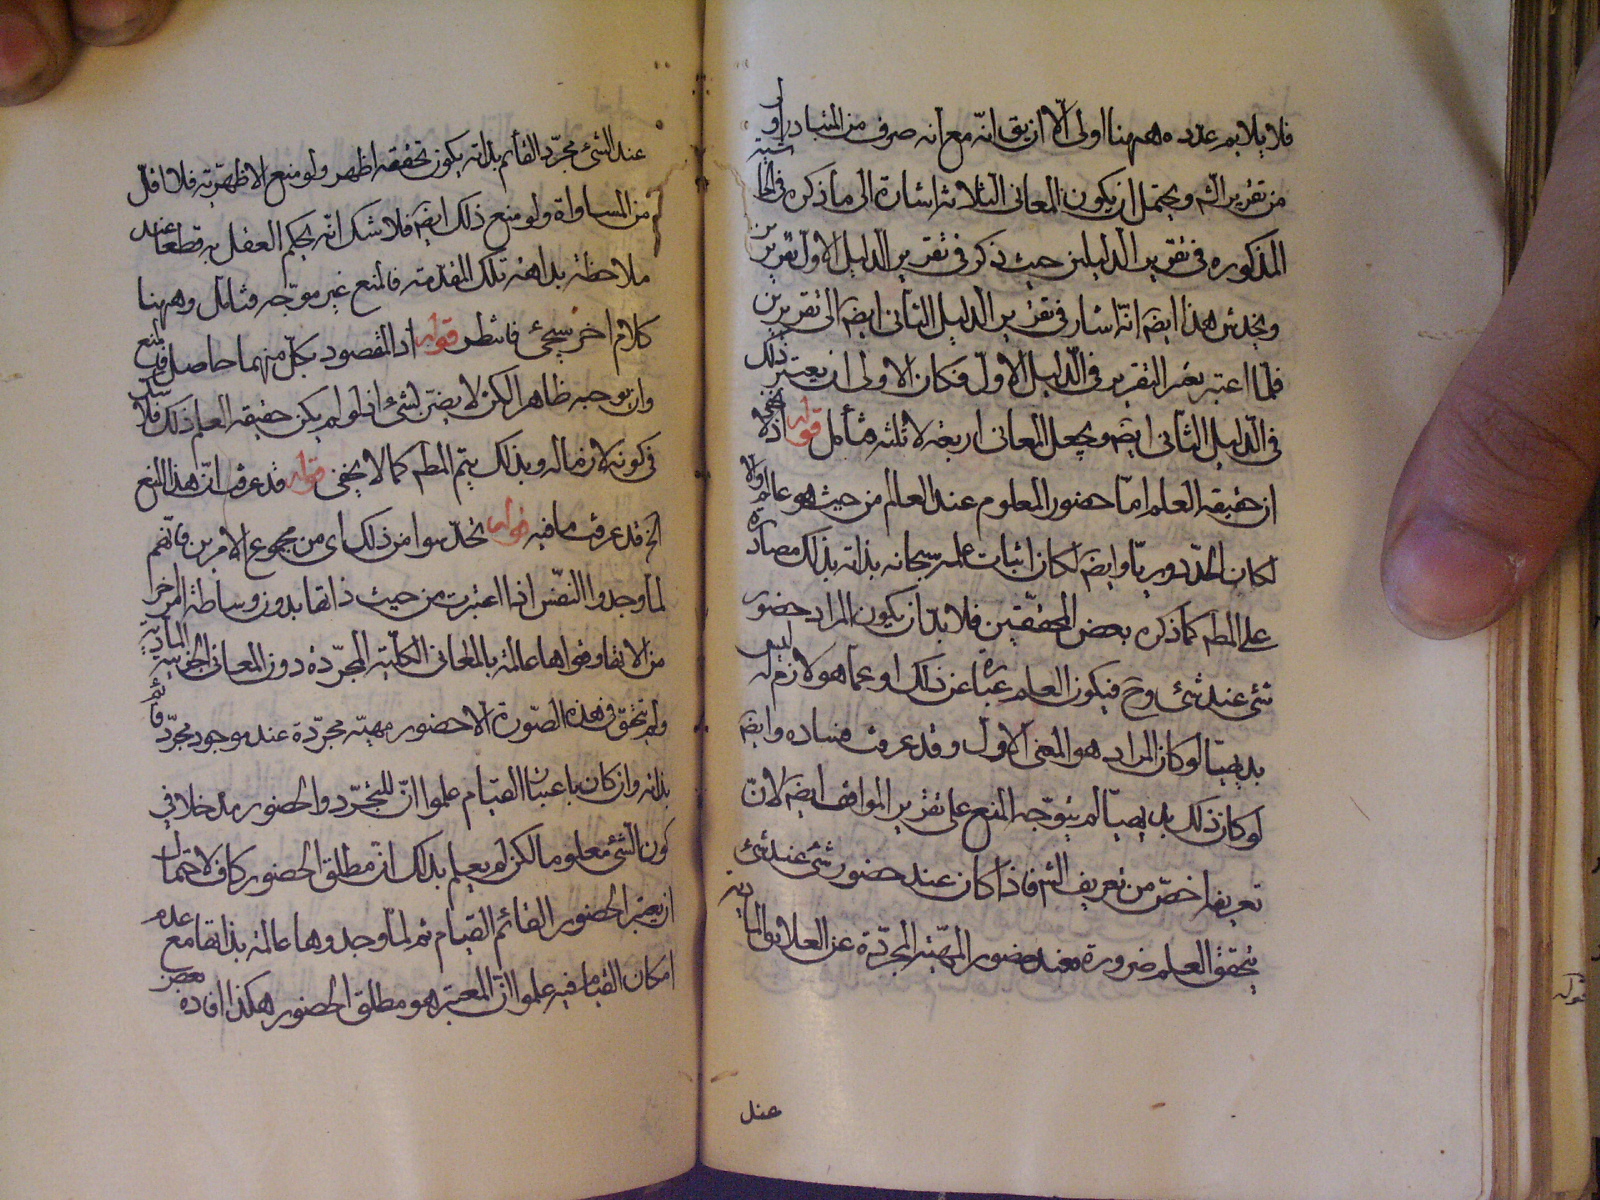 فلا يلايم عدده ههنا اولى الا ان يق انه مع انه صرف من المتبادر او لى
من تقرير الشم ويحتمل ان يكون المعانى الثلاثة اشارة الى ما ذكره فى الحاشية
المذكوره فى تقرير الدليلين حيث ذكر فى تقرير الدليل الاول تقريرين
ويخدش هذا ايضا انه اشار فى تقرير الدليل الثانى ايضا الى تقريرين
فلما اعتبر تغير التقرير فى الدليل الاول فكان الاولى ان يعتبر ذلك
فى الدليل الثانى ايضا ويجعل المعانى اربعة لا ثلثه فتأمل قوله اذ لا يخفى
ان حقيقة العلم اما حضور المعلوم عند العالم من حيث هو عالم والا
لكان الحد دوريا وايضا لكان اثبات علمه سبحانه بذاته بذلك مصادرة
على المطم كما ذكره بعض المحققين فلا بد ان يكون المراد حضور
شئ عند شئ وح فيكون العلم عبارة عن ذلك او عما هو لازم له ليس
بديهيا لو كان المراد هو المعنى الاول وقد عرفت فساده وايضا
لو كان ذلك بديهيا لم يتوجه المنع على تقرير المواقف ايضا لان
تعريفه اخص من تعريف الشم فاذا كان عند حضور شئ عند شئ
يتحقق العلم ضرورة فعند حضور المهية المجردة عن العلايق المادية
عند
عند الشئ مجرد القائم بذاته يكون تحققه اظهر ولو منع الاظهرية فلا اقل
من المساواة ولو منع ذلك ايضا فلا شك انه يحكم العقل به قطعا عند
ملاحظة بداهة تلك المقدمة فالمنع غير موجه فتأمل وههنا
كلام اخر سيجئ فانتظر قوله اذ المقصود بكل منهما حاصل فى المنع
وان توجه ظاهرا لكن لا يضر لشئ اذ لو لم يكن حقيقة العلم ذلك فلا شك
فى كونه لازما له وبذلك يتم المطم كما لا يخفى قوله قد عرفت ان هذا المنع
الخ قد عرفت ما فيه قوله تحدسوا من ذلك اى من مجموع الامرين فانهم
لما وجدوا النفس اذا اعتبرت من حيث ذاتها بدون وساطة
من الاتها وقواها عالمة بالمعانى الكلية المجردة دون المعانى الجزئية المادية
ولم يتحقق فى هذه الصورة الا حضور مهية مجردة عند موجود مجرد قائم
بذاته وان كان باعتبار القيام علموا ان للتجرد والحضور مدخلا فى
كون الشئ معلوما لكن لم يعلم بذلك ان مطلق الحضور كاف لاحتمال
ان يعتبر الحضور القائم القيام ثم لما وجدوها عالمة بذاتها مع عدم
امكان القيام فيه علموا ان المعتبر هو مطلق الحضور هكذا افاده بعض